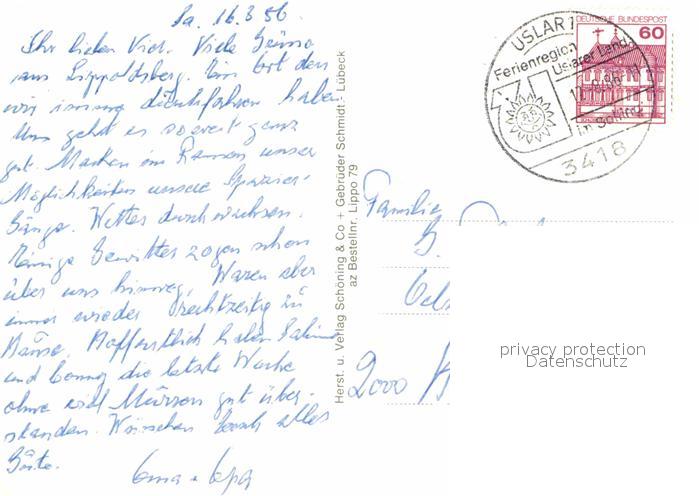 Sa. 16.8.86.
Ihr lieben Vier. Viele Grüße
aus Lippoldsberg. Ein Ort den
wir immer durchfahren haben.
Uns geht es soweit ganz
gut. Machen im Rahmen unser
Möglichkeiten unsere Spazier-
gänge. Wetter durchwachsen.
Einige Gewitter zogen schon
über uns hinweg, Waren aber
immer wieder rechtzeitig zu
Hause. Hoffentlich haben Sabine
und Conny die letzte Woche
ohne viel Murren gut über-
standen. Wünschen Euch alles
Gute.
Oma + Opa
Herst. u. Verlag Schöning & Co + Gebrüder Schmidt - Lübeck
az Bestellnr. Lippo 79
USLAR 1
Ferienregion
Uslarer Land
im Solling
3418
DEUTSCHE BUNDESPOST
60
Familie
2000
privacy protection
Datenschutz